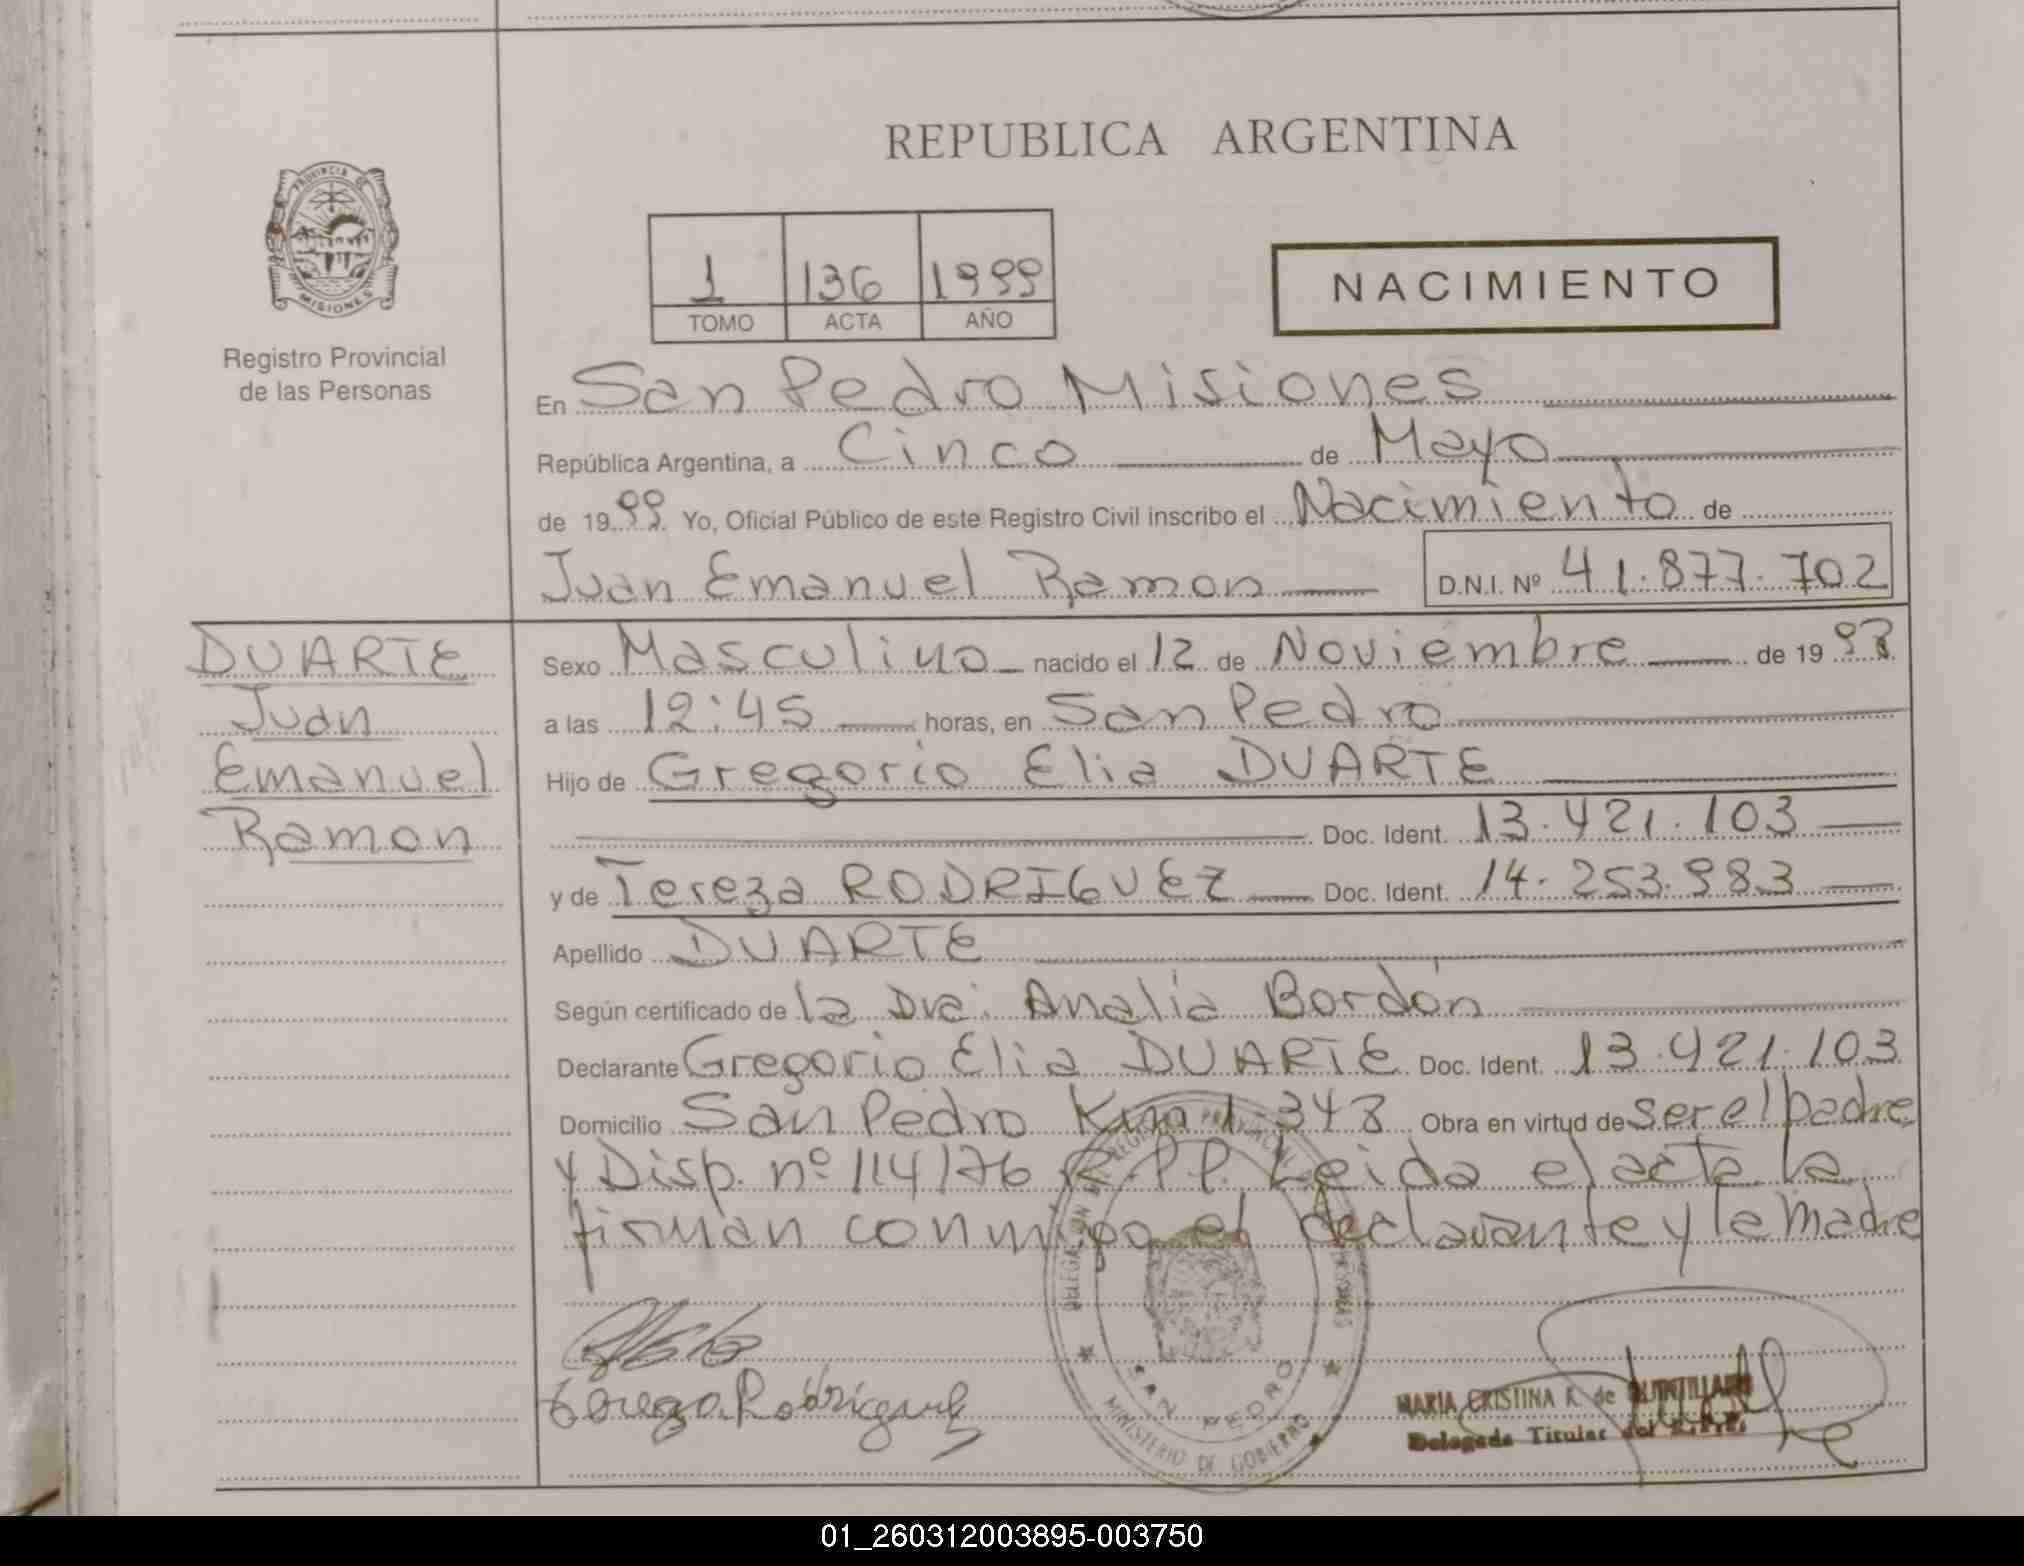 REPUBLICA ARGENTINA
PROVINCIA DE
MISIONES
Registro Provincial
de las Personas
1 136 1999
TOMO ACTA AÑO
NACIMIENTO
En San Pedro Misiones
República Argentina, a Cinco de Mayo
de 1999 Yo, Oficial Público de este Registro Civil inscribo el Nacimiento de
Juan Emanuel Ramon D.N.I. Nº 41.877.702
DUARTE
Juan
Emanuel
Ramon
Sexo Masculino nacido el 12 de Noviembre de 1998
a las 12:45 horas, en San Pedro
Hijo de Gregorio Elia DUARTE
Doc. Ident. 13.421.103
y de Tereza RODRIGUEZ Doc. Ident. 14.253.983
Apellido DUARTE
Según certificado de la Dra. Analía Bordón
Declarante Gregorio Elia DUARTE Doc. Ident. 13.421.103
Domicilio San Pedro Km 1.348 Obra en virtud de ser el padre
y Disp. nº 114/76 R.P.P. Leida el acta la
firman conmigo el declarante y la madre
DELEGACION DEL REGISTRO PROVINCIAL DE LAS PERSONAS
SAN PEDRO
MINISTERIO DE GOBIERNO
Tereza Rodriguez
MARIA CRISTINA R. de QUINTILLAN
Delegada Titular del R.P.P.
01_260312003895-003750